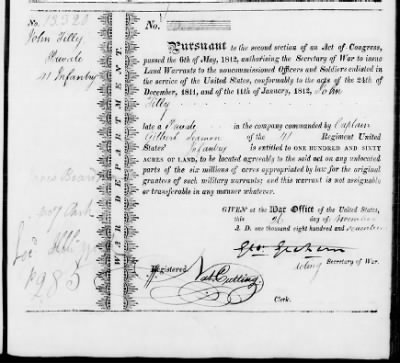 No. 13320
John Tilly
Private
41 Infantry
WAR DEPARTMENT.
No.
PURSUANT to the second section of an Act of Congress,
passed the 6th of May, 1812, authorising the Secretary of War to issue
Land Warrants to the noncommissioned Officers and Soldiers enlisted in
the service of the United States, conformably to the acts of the 24th of
December, 1811, and of the 11th of January, 1812, John
Tilly
late a Private in the company commanded by Captain
Gilbert of the 41 Regiment United
States' Infantry is entitled to ONE HUNDRED AND SIXTY
ACRES OF LAND, to be located agreeably to the said act on any unlocated
parts of the six millions of acres appropriated by law for the original
grantees of such military warrants; and this warrant is not assignable
or transferable in any manner whatever.
GIVEN at the War Office of the United States,
this 26 day of November
A. D. one thousand eight hundred and seventeen
Geo: Graham
Acting Secretary of War.
Registered
Nat: Cutting
Clerk.
New York